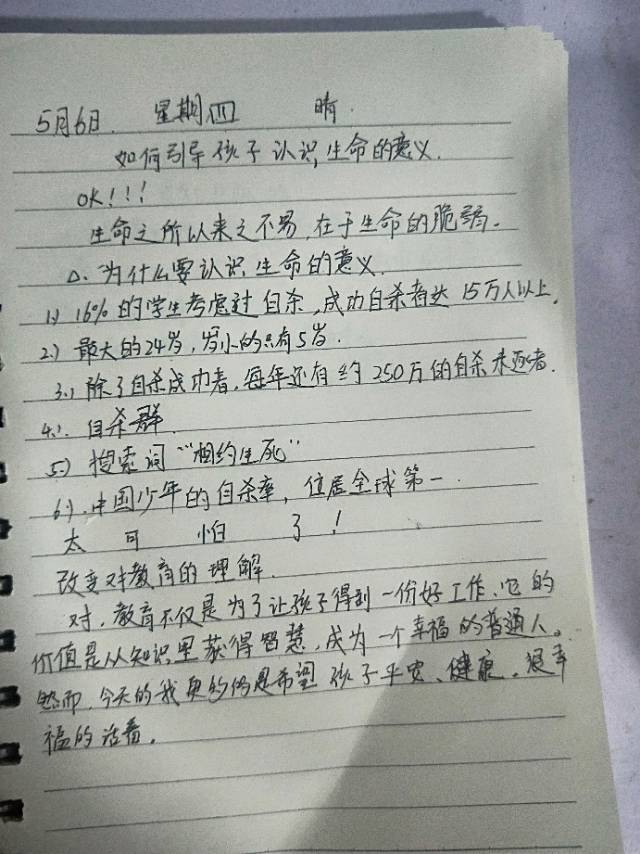 5月6日. 星期四 晴.
如何引导孩子认识生命的意义.
OK!!!
生命之所以来之不易,在于生命的脆弱.
△.为什么要认识生命的意义.
1) 16%的学生考虑过自杀,成功自杀者达15万人以上.
2.) 最大的24岁,岁小的只有5岁.
3.) 除了自杀成功者,每年还有约250万的自杀未遂者.
4.). 自杀群.
5.) 搜索词“相约生死”
6.).中国少年的自杀率,位居全球第一.
太可怕了!
改变对教育的理解.
对,教育不仅是为了让孩子得到一份好工作、它的
价值是从知识里获得智慧,成为一个幸福的普通人。
然而,今天的我更多的是希望孩子平安、健康,是幸
福的活着。